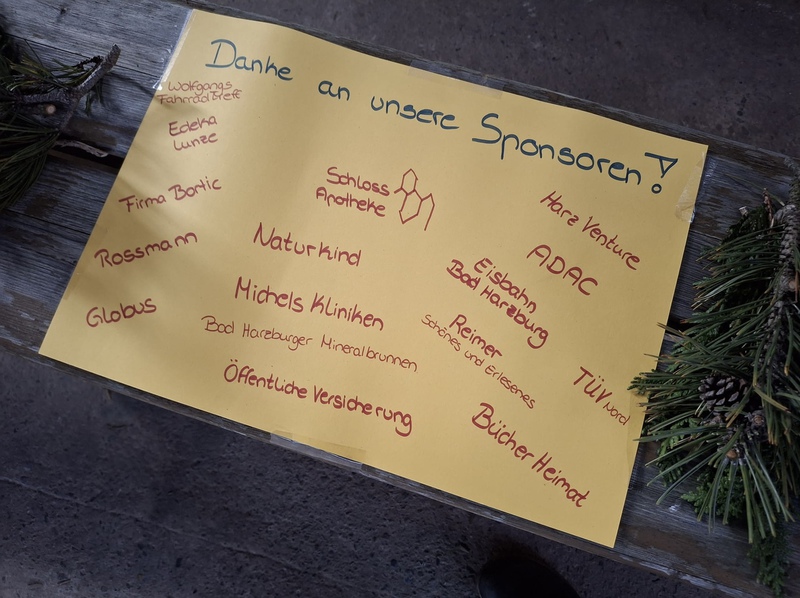 Danke an unsere Sponsoren!
Wolfgangs
Fahrradtreff
Edeka
Lunze
Firma Bortic
Rossmann
Globus
Schloss
Apotheke
Naturkind
Michels Kliniken
Bad Harzburger Mineralbrunnen
Öffentliche Versicherung
Harz Venture
ADAC
Eisbahn
Bad Harzburg
Reimer
Schönes und Erlesenes
TÜV Nord
Bücher Heimat